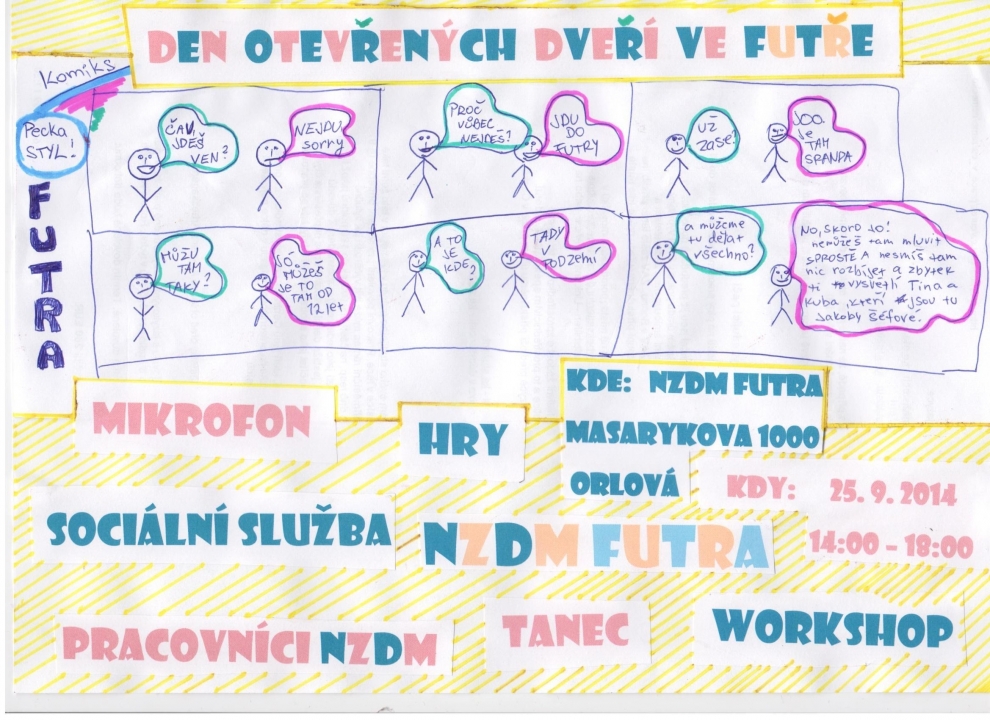 DEN OTEVŘENÝCH DVEŘÍ VE FUTŘE
Komiks
Pecka
STYL!
FUTRA
ČAU,
JDEŠ
VEN?
NEJDU
sorry
PROČ
VŮBEC
NEJDEŠ?
JDU
DO
FUTRY
UŽ
ZASE?
JOO.
je
TAM
SRANDA
MŮŽU
TAM
TAKY?
JO.
MŮŽEŠ
je TO
TAM OD
12 let
A TO
je
KDE?
TADY
V
PODZEMÍ
a můžeme
tu dělat
všechno?
No, skoro JO!
nemůžeš tam mluvit
SPROSTĚ A nesmíš tam
nic rozbíjet a zbytek
ti vysvětlí Tina a
Kuba, kteří jsou tu
Jakoby šéfové.
MIKROFON
HRY
KDE: NZDM FUTRA
MASARYKOVA 1000
ORLOVÁ
KDY: 25. 9. 2014
14:00 – 18:00
SOCIÁLNÍ SLUŽBA
NZDM FUTRA
PRACOVNÍCI NZDM
TANEC
WORKSHOP